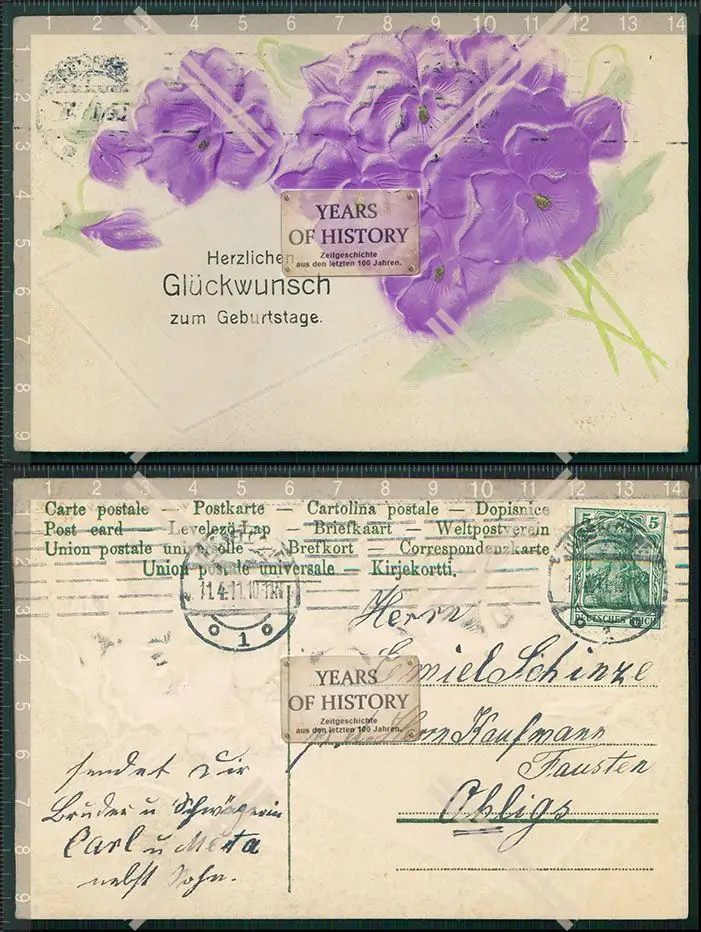 1 2 3 4 5 6 7 8 9 10 11 12 13 14
2
3
4
5
6
7
8
9
YEARS
OF HISTORY
Zeitgeschichte
aus den letzten 100 Jahren.
Herzlichen
Glückwunsch
zum Geburtstage.
1 2 3 4 5 6 7 8 9 10 11 12 13 14
2
3
4
5
6
7
8
9
Carte postale — Postkarte — Cartolina postale — Dopisnice
Post card — Levelező-Lap — Briefkaart — Weltpostverein
Union postale universelle — Brefkort — Correspondenzkarte
Union postale universale — Kirjekortti.
5 5
DEUTSCHES REICH
11.4.11.10
1
Herrn
Emiel Schinze
YEARS
OF HISTORY
Zeitgeschichte
aus den letzten 100 Jahren.
Herrn Kaufmann
Fausten
Ohligs
sendet Dir
Bruder u Schwägerin
Carl u Meta
nebst Sohn.